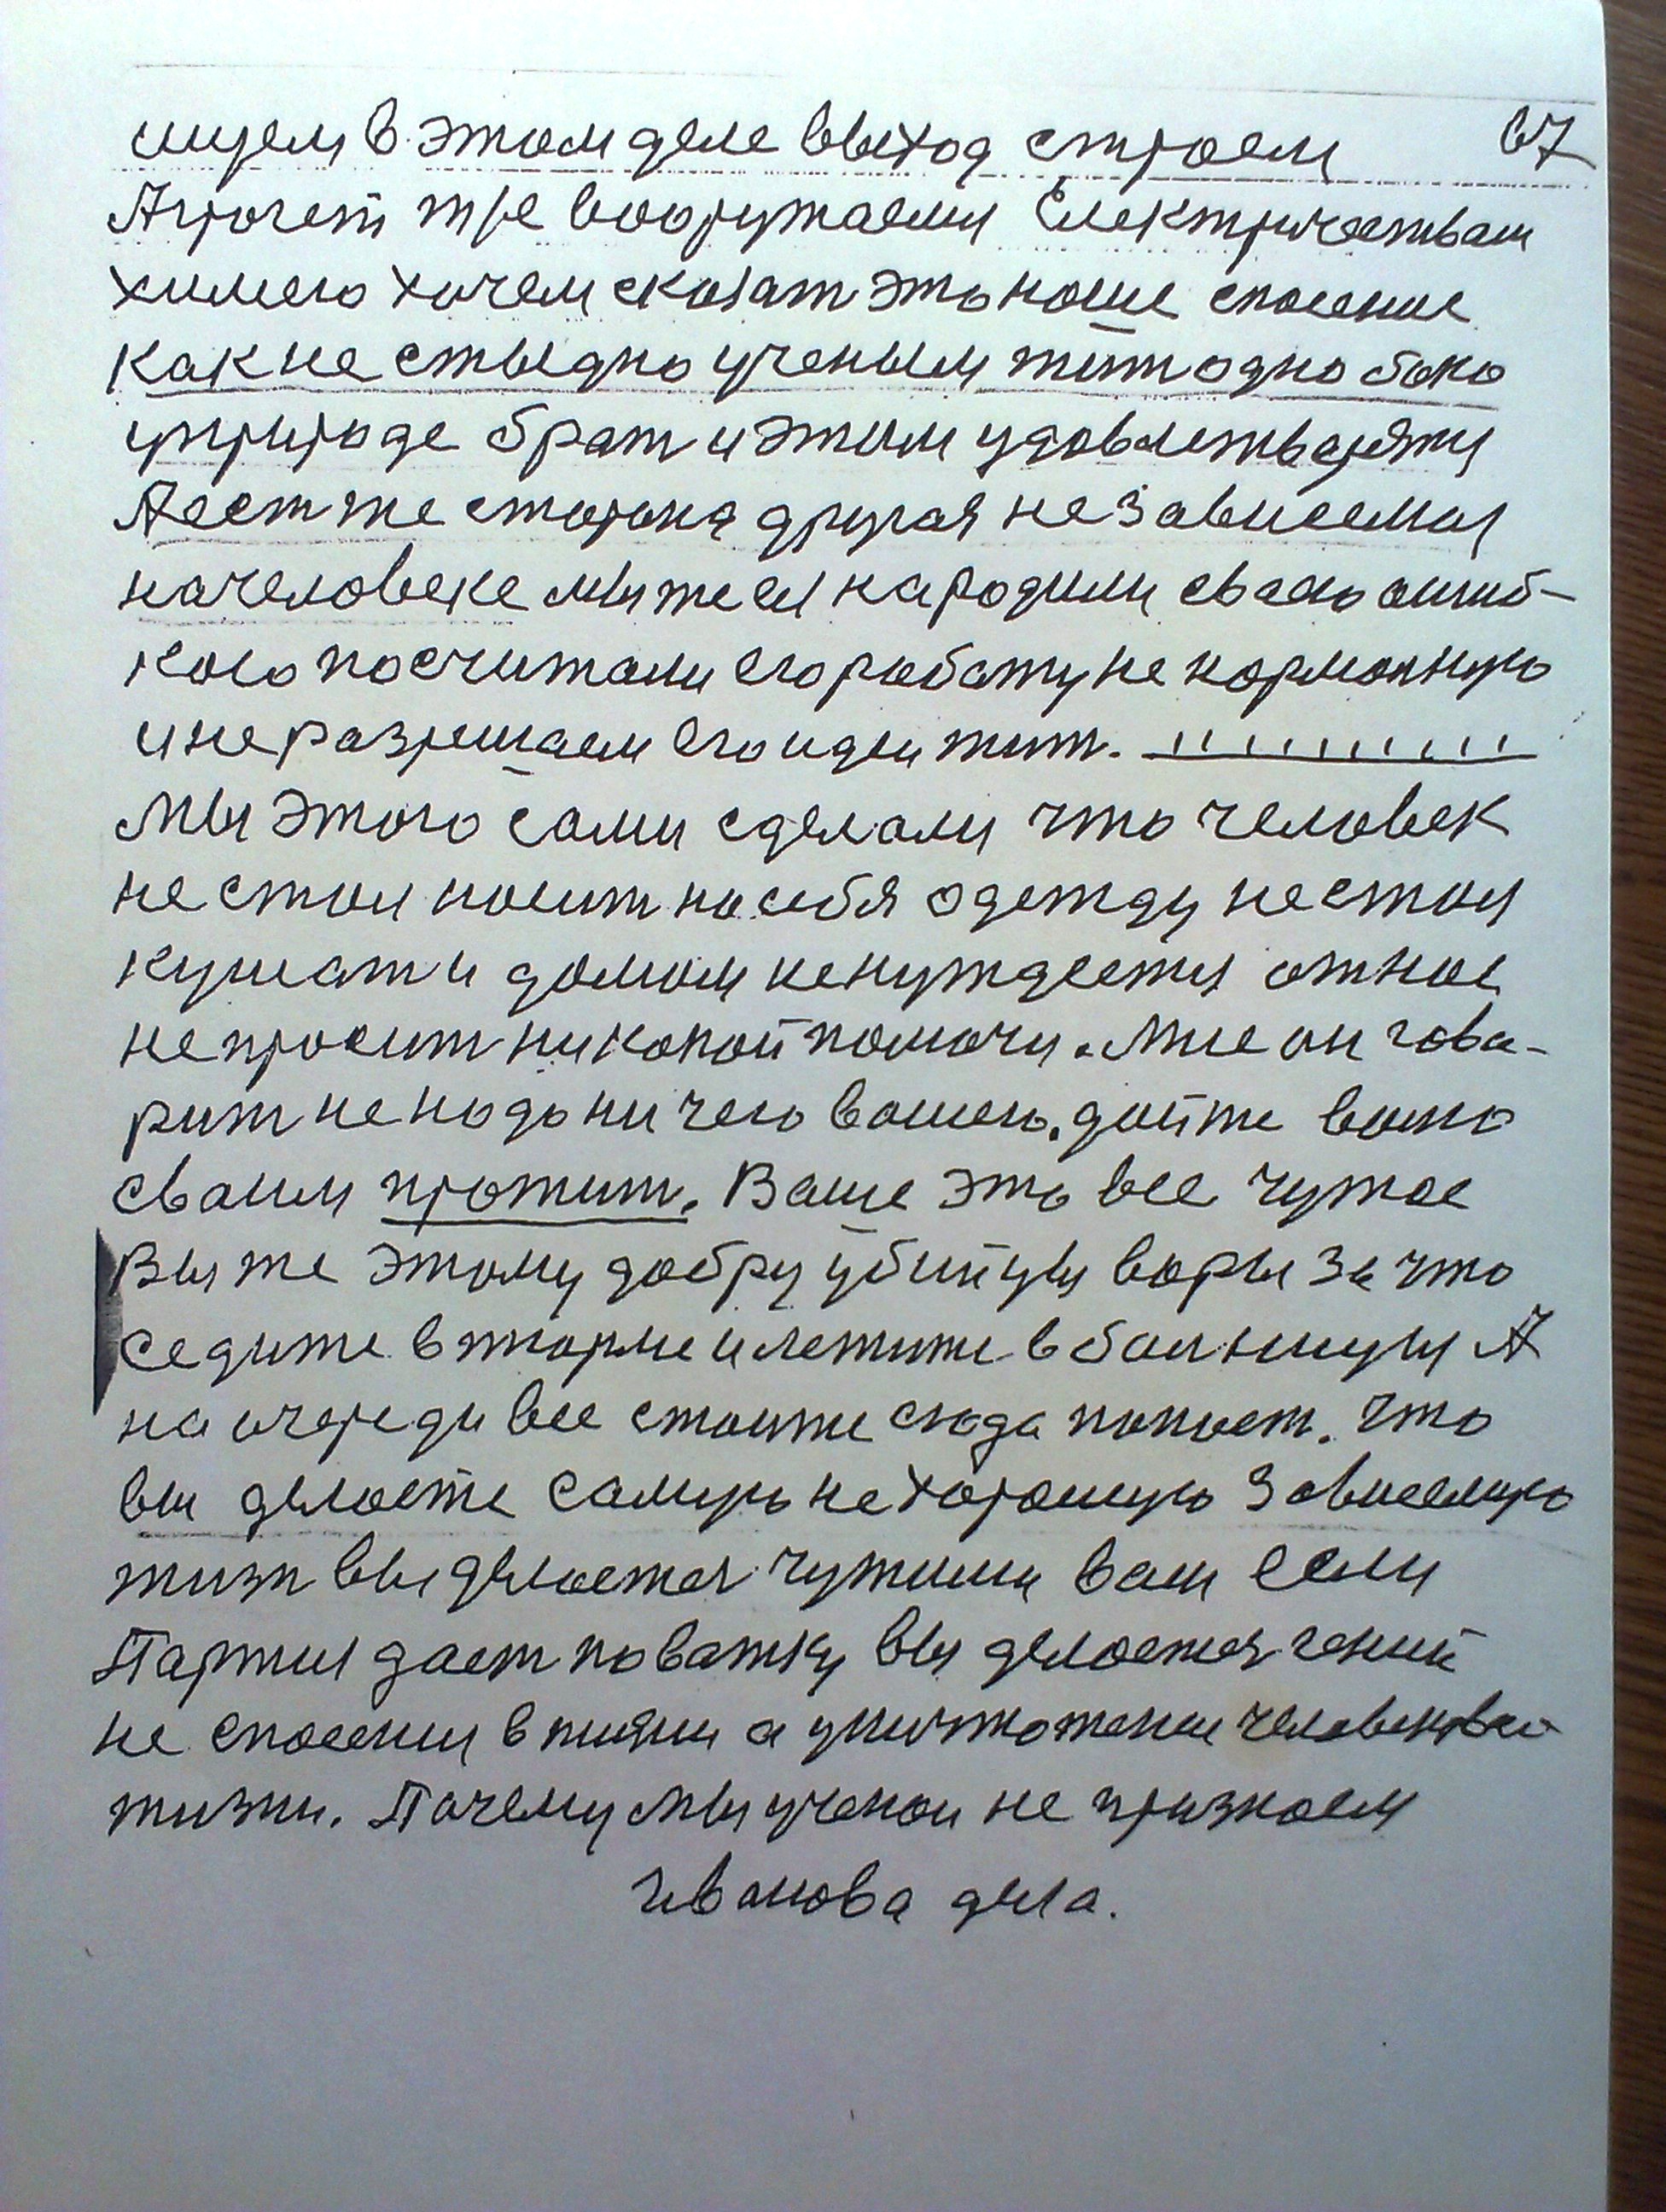 ищем в этом деле выход строем 67
вооружаемся Електричествам
химею хочем сказат это наше спасение
как не стыдно ученым жит одно боко
у природе брат и этим удовлетварятя
А ест же сторона другая независемая
на человеке мы же ея народили сваею ошиб-
кою посчитали его работу не нормалную
и не разрешаем его идеи жит.
Мы этого сами сделали что человек
не стал носит на себя одежду не стал
кушат и домом не нуждается от нас
не просит никокой помочи. Мне он гова-
рит не надо ничего вашего. дайте вашо
сваим прожит. Ваше это все чужое
Вы же этому добру убийцы воры за что
седите в тюрме и лежите в болницы А
на очереди все стоите сюда попаст. Что
вы делаете самую не хорошую зависемую
жизн вы делаетея чужими вам если
Партия дает поватку вы делаетея гений
не спасении в жизни а уничтожении
жизни. Почему мы ученаи не признаем
Иванова дела.